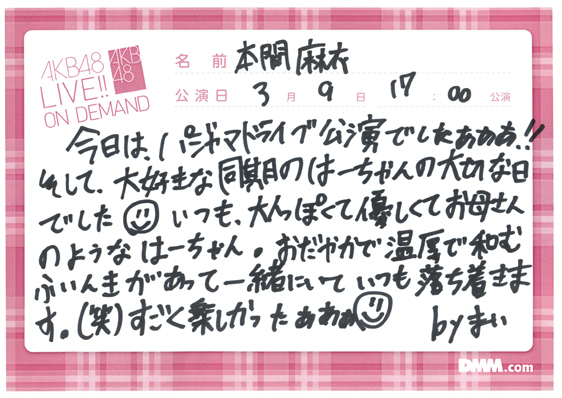 AKB48
LIVE!!
ON DEMAND
AKB
48
名 前 本間 麻衣
公演日 3 月 9 日 17 : 00 公演
今日は、パジャマドライブ公演でしたぁぁあ!!
そして、大好きな同期のはーちゃんの大切な日
でした いつも、大人っぽくて優しくてお母さん
のようなはーちゃん。おだやかで温厚で和む
ふいんきがあって一緒にいていつも落ち着きま
す。(笑)すごく楽しかったぁぁぁ byまい
DMM.com